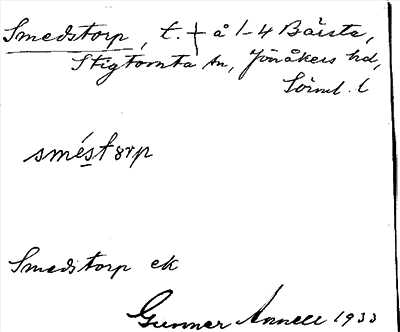 Smedstorp, t. † å 1-4 Bärsta,
Stigtomta sn, Jönåkers hd,
Sörml. l
smés̲tɔrp
Smedstorp ek
Gunnar Annell 1933